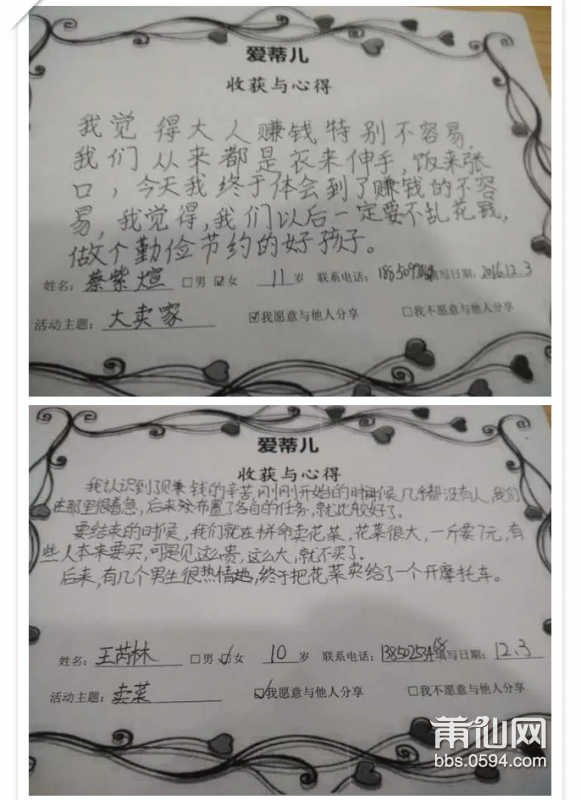 爱蒂儿
收获与心得
我觉得大人赚钱特别不容易,
我们从来都是衣来伸手,饭来张
口,今天我终于体会到了赚钱的不容
易,我觉得,我们以后一定要不乱花钱,
做个勤俭节约的好孩子。
姓名:蔡紫煊 □男 ☑女 11岁 联系电话: 填写日期:2016.12.3
活动主题:大卖家 ☑我愿意与他人分享 □我不愿意与他人分享
爱蒂儿
收获与心得
我认识到了赚钱的辛苦,刚刚开始的时候几乎都没有人,我们
在那里很着急,后来布置了各自的任务,就比较好了。
要结束的时候,我们就在拼命卖花菜,花菜很大,一斤要7元,有
些人本来要买,可是见这么贵,这么大,就不买了。
后来,有几个男生很热情地,终于把花菜卖给了一个开摩托车。
姓名:王芮林 □男 ☑女 10岁 联系电话: 填写日期:12.3
活动主题:卖菜 ☑我愿意与他人分享 □我不愿意与他人分享
莆仙网
bbs.0594.com